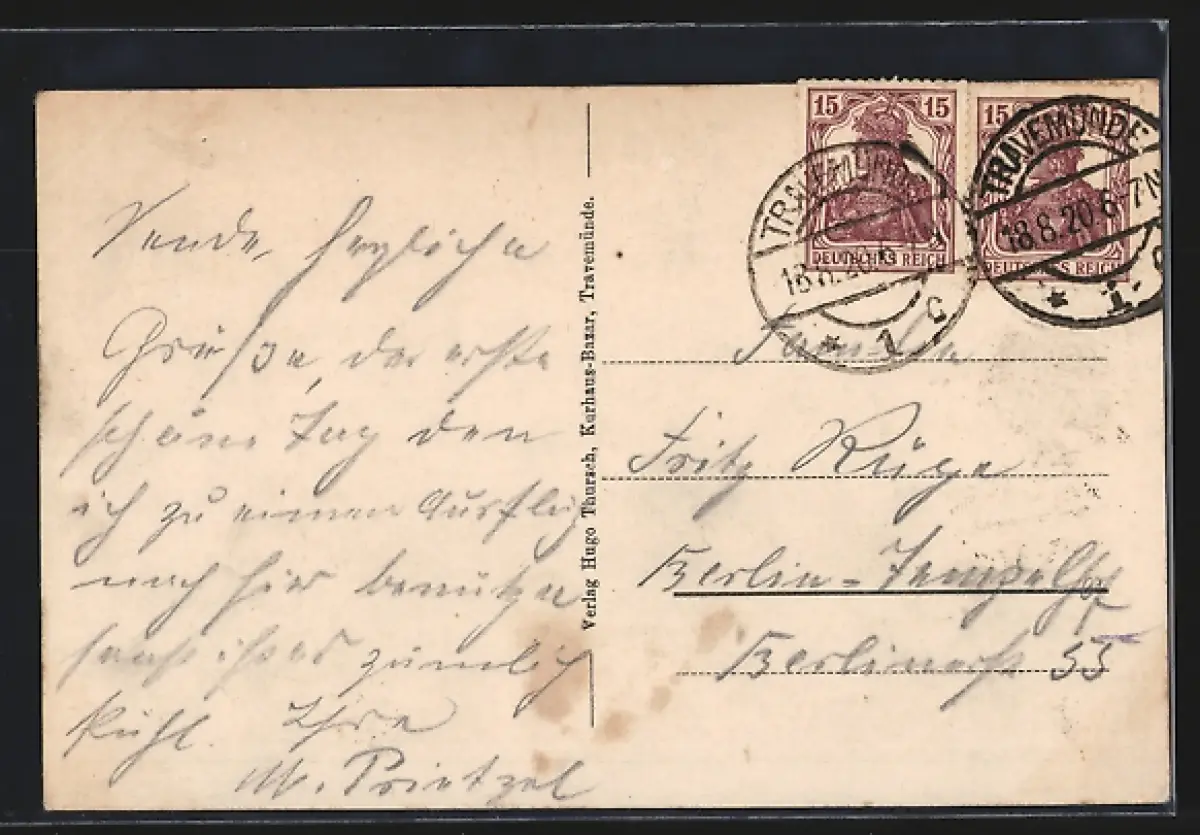 Sende herzliche
Grüße, der erste
schöne Tag den
ich zu einem Ausflug
nach hier benutze
sonst ist es ziemlich
kühl. Ihre
M. Prietzel
Verlag Hugo Thursch, Kurhaus-Bazar, Travemünde.
15 15
DEUTSCHES REICH
TRAVEMÜNDE
18.8.20.
* 1 c
15
DEUTSCHES REICH
TRAVEMÜNDE
18.8.20.6-7N
* 1
Familie
Fritz Rüge
Berlin-Tempelhof
Berlinerst 55